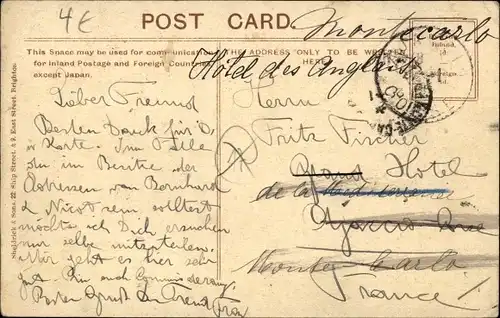 4 €
POST CARD.
Montecarlo
This Space may be used for communication
for Inland Postage and Foreign Countries
except Japan.
THE ADDRESS ONLY TO BE WRITTEN
HERE
Inland
Foreign
Hôtel des Anglais
MONTE-CARLO
Lieber Freund
Besten Dank für D.
Karte. Im Falle
du im Besitze der
Adressen von Bernhard
& Nicot sein solltest
möchte ich Dich ersuchen
mir selbe mitzuteilen.
Mir geht es hier sehr
gut. Bin auch
Besten Gruss Dein Freund
Herrn
Fritz Fischer
Grand Hotel
de la Méditerranée
Monte-Carlo
France!
Singleleick & Sons, 22 Ship Street, & 2 East Street Brighton.